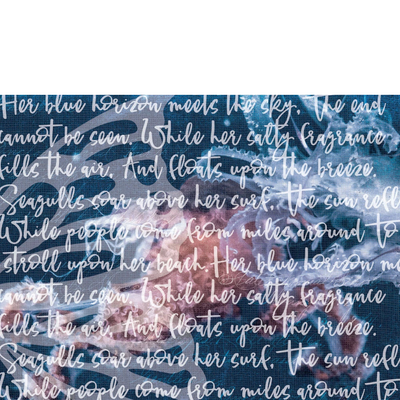 Her blue horizon meets the sky. The end
cannot be seen. While her salty fragrance
fills the air. And floats upon the breeze.
Seagulls soar above her surf. the sun refl
While people come from miles around to
stroll upon her beach. Her blue horizon me
cannot be seen. While her salty fragrance
fills the air. And floats upon the breeze.
Seagulls soar above her surf. the sun refl
While people come from miles around to